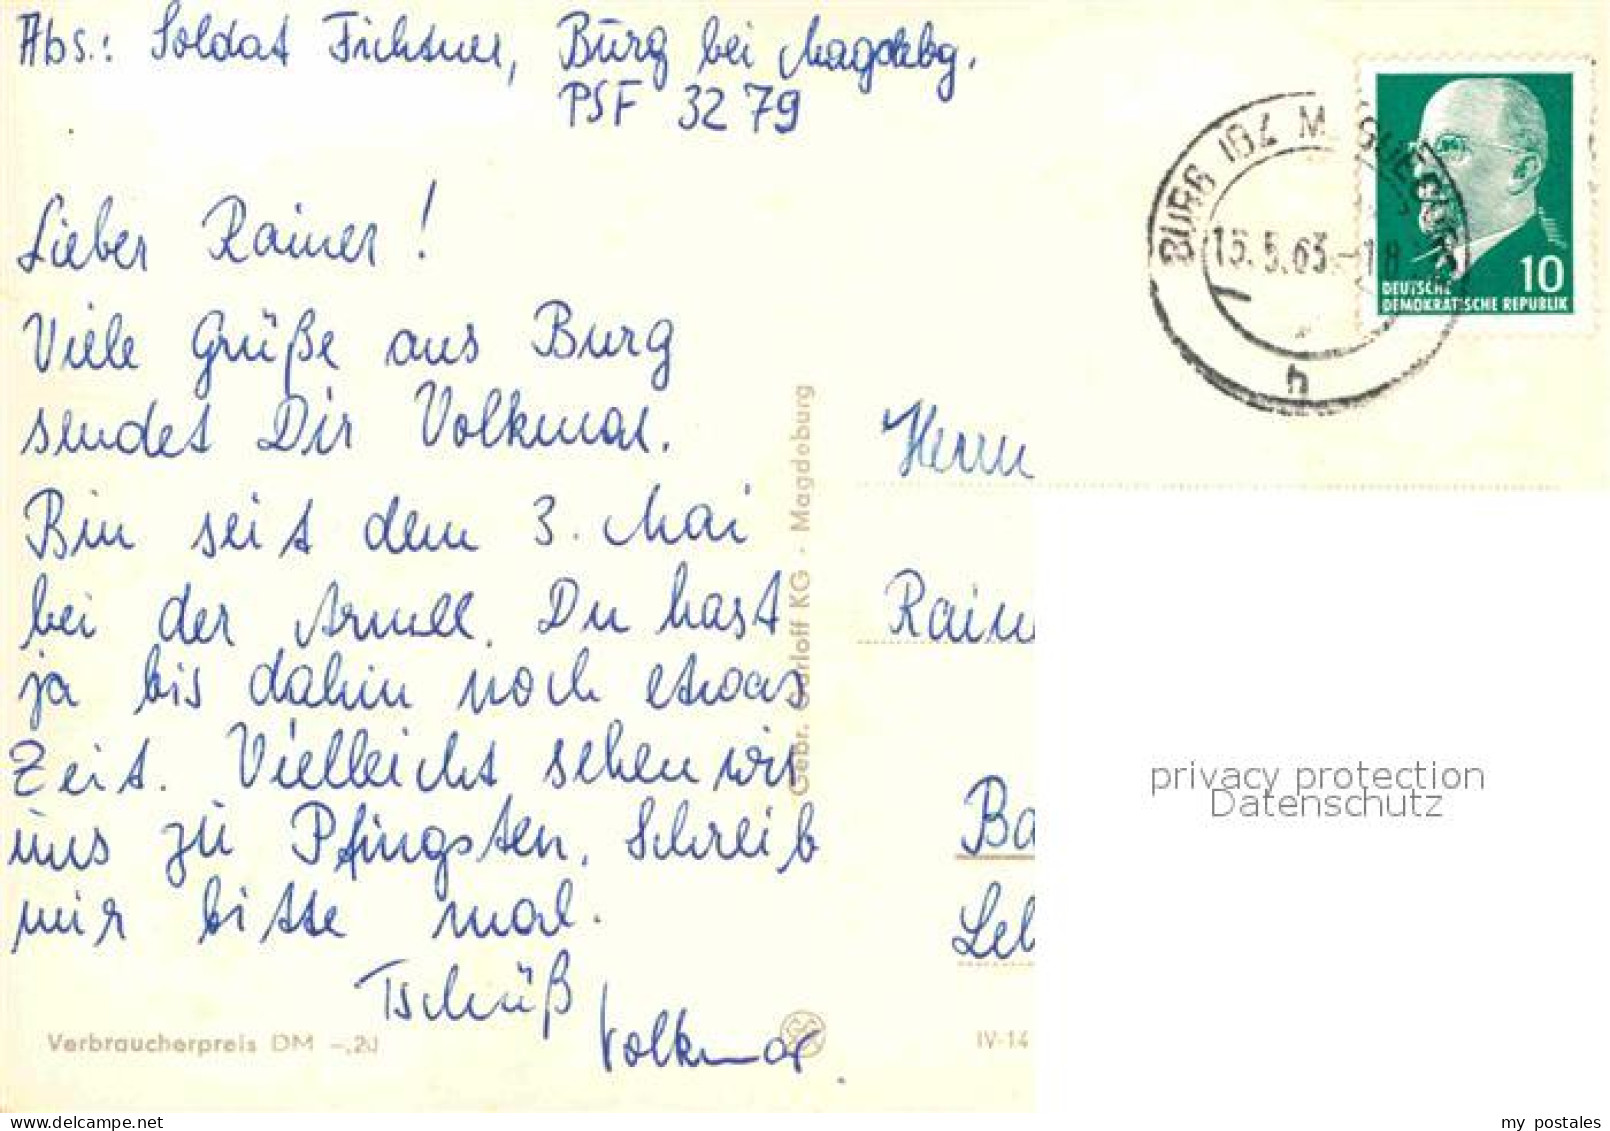 Abs.: Soldat Fichtner, Burg bei Magdebg.
PSF 3279
Lieber Rainer!
Viele Grüße aus Burg
sendet Dir Volkmar.
Bin seit dem 3. Mai
bei der Armee. Du hast
ja bis dahin noch etwas
Zeit. Vielleicht sehen wir
uns zu Pfingsten. Schreib
mir bitte mal.
Tschüß
Volkmar
Verbraucherpreis DM -,20
Gebr. Garloff KG · Magdeburg
IV-14
BURG (BZ MAGDEBURG)
15.5.63.-18
h
10
DEUTSCHE
DEMOKRATISCHE REPUBLIK
Herrn
Rain
Ba
Leb
privacy protection
Datenschutz
my postales